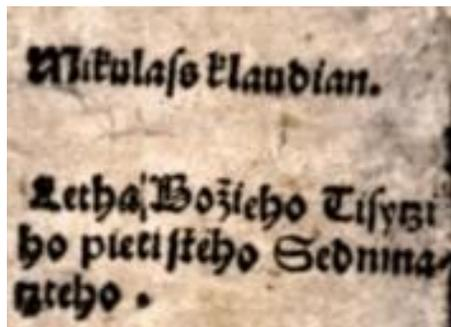 Mikulaſs klaudian.
Letha Božieho Tiſytzi
ho pietiſtého Sedmna-
tzteho.